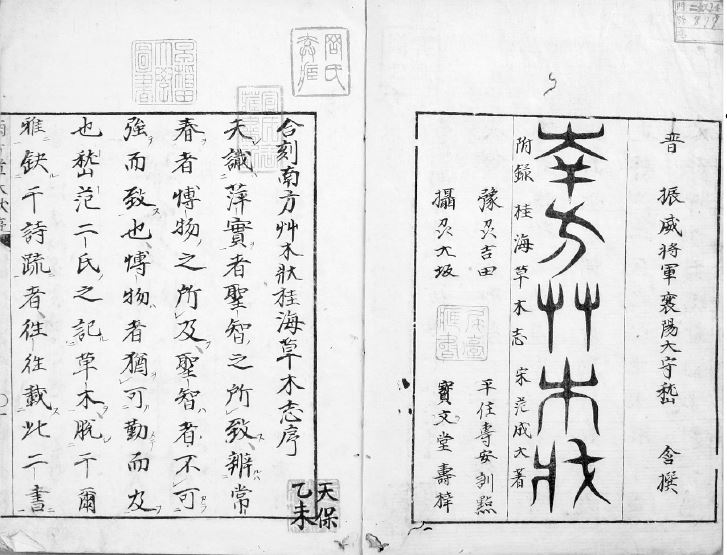 晋 振威将軍襄陽太守嵆 含撰
南方艸木状
附録 桂海草木志 宋范成大著
豫刕吉田 平住專安訓點
攝刕大坂 寶文堂壽梓
合刻南方艸木狀桂海草木志序
夫識萍實者聖智之所致辨常
春者博物之所及聖智者不可
強而致也博物者猶可勤而及
也嵆范二氏之記草木脱于爾
雅缺于詩疏者往往載此二書
天保
乙未